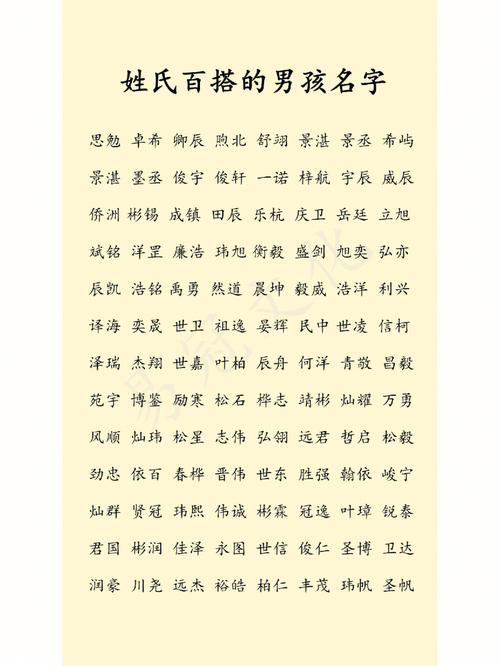 姓氏百搭的男孩名字
思勉 卓希 卿辰 煦北 舒翊 景湛 景丞 希屿
景湛 墨丞 俊宇 俊轩 一诺 梓航 宇辰 威辰
侨洲 彬锡 成镇 田辰 乐杭 庆卫 岳廷 立旭
斌铭 洋罡 廉浩 玮旭 衡毅 盛剑 旭奕 弘亦
辰凯 浩铭 禹勇 然道 晨坤 毅威 浩洋 利兴
译海 奕晟 世卫 祖逸 晏辉 民中 世凌 信柯
泽瑞 杰翔 世嘉 叶柏 辰舟 何洋 青敬 昌毅
苑宇 博鉴 励寒 松石 桦志 靖彬 灿耀 万勇
风顺 灿玮 松星 志伟 弘翎 远君 哲启 松毅
劲忠 依百 春桦 晋伟 世东 胜强 翰依 峻宁
灿群 贤冠 玮熙 伟诚 彬霖 冠逸 叶璋 锐泰
君国 彬润 佳泽 永图 世信 俊仁 圣博 卫达
润豪 川尧 远杰 裕皓 柏仁 丰茂 玮帆 圣帆
易冠文化